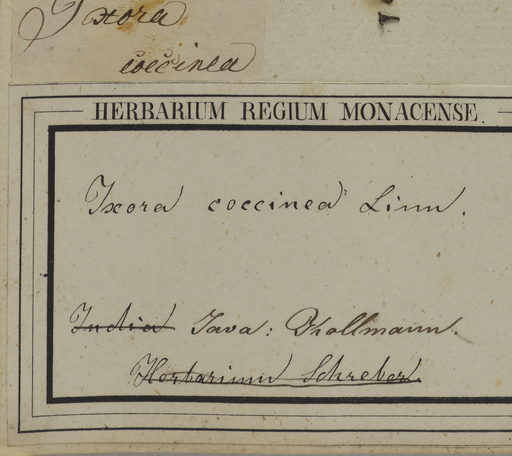 Ixora
coccinea
HERBARIUM REGIUM MONACENSE.
Ixora coccinea Linn.
India Java: Kollmann.
Herbarium Schreber.